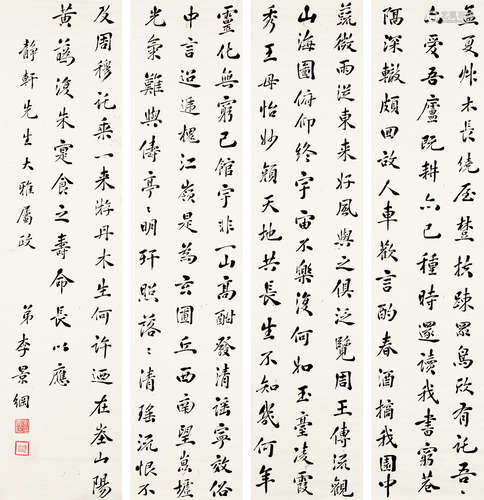 孟夏艸木長繞屋樹扶疎眾鳥欣有託吾
亦愛吾廬既耕亦已種時還讀我書窮巷
隔深轍頗回故人車歡言酌春酒摘我園中
蔬微雨從東來好風與之俱泛覽周王傳流觀
山海圖俯仰終宇宙不樂復何如玉臺凌霞
秀王母怡妙顏天地共長生不知幾何年
靈化無窮已館宇非一山高酣發清謠寧效俗
中言迢遞槐江嶺是為玄圃丘西南望崑墟
光氣難與儔亭〻明玕照落〻清瑤流恨不
及周穆託乘一來游丹木生何許迺在峚山陽
黃華復朱實食之壽命長以應
靜軒先生大雅屬政
弟李景綱